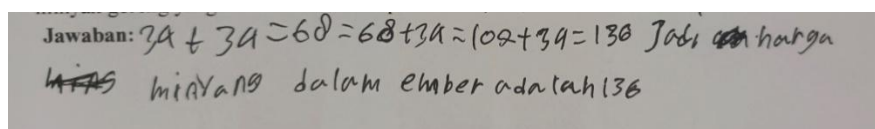 Jawaban: 34 + 34 = 68 = 68 + 34 = 102 + 34 = 136 Jadi harga
minyang dalam ember adalah 136